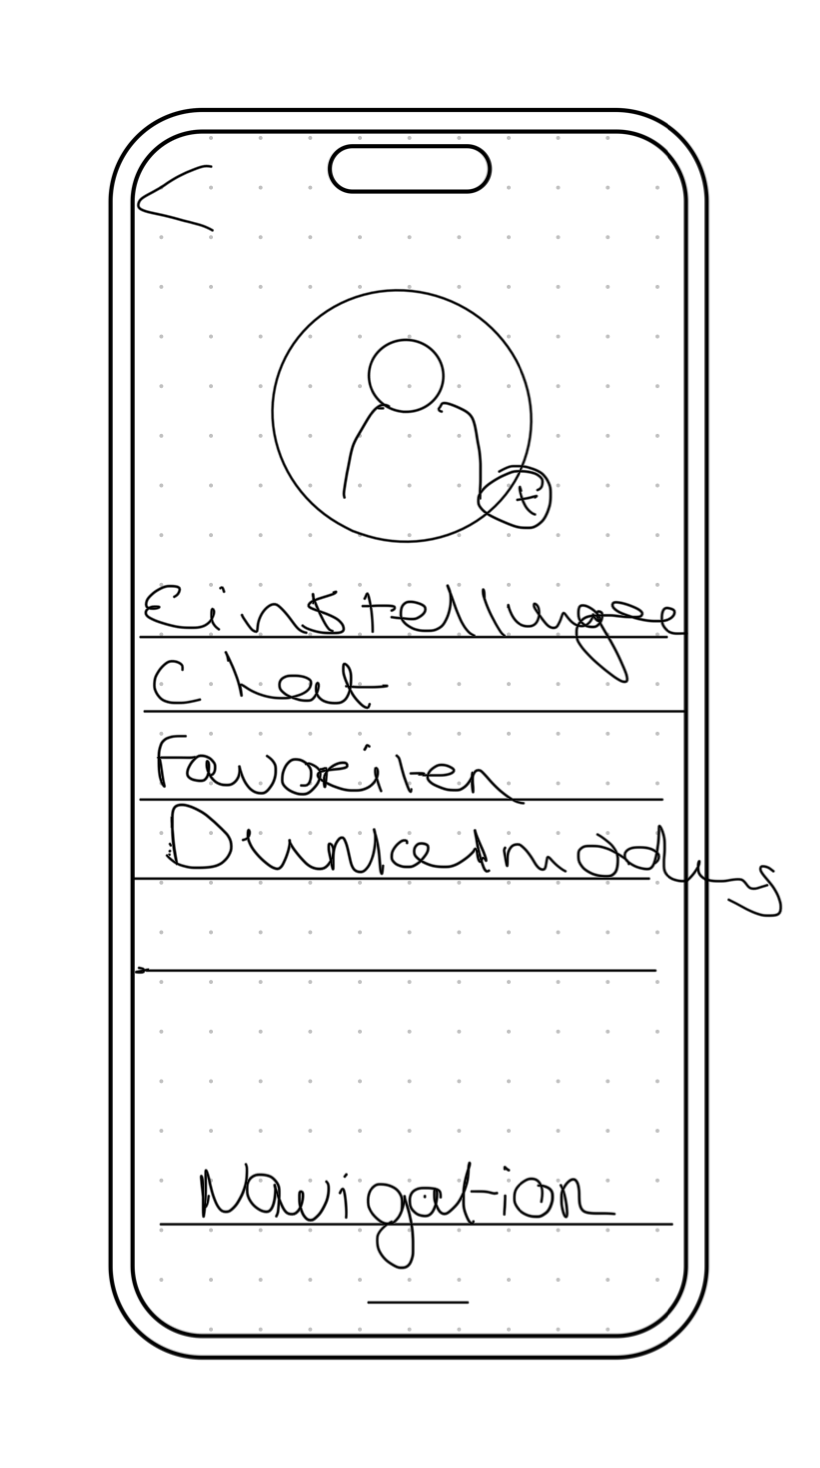 Einstellungen
Chat
Favoriten
Dunkelmodus
Navigation